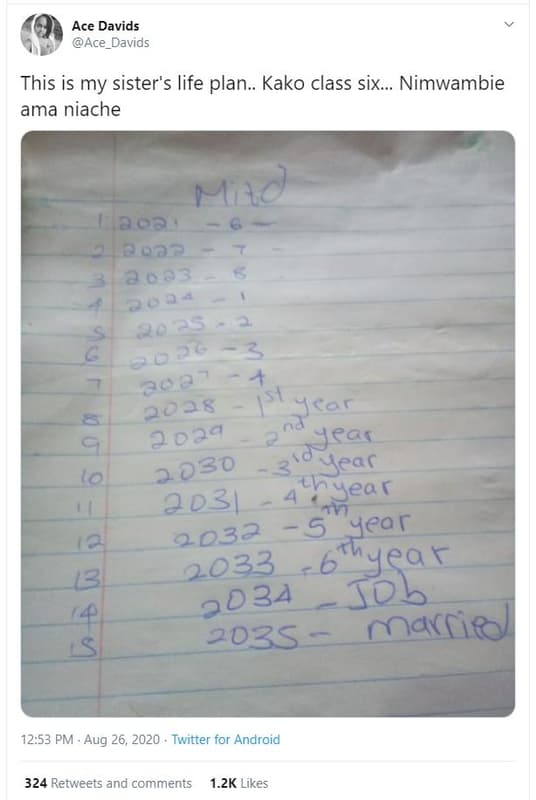 Ace Davids
@Ace_Davids
This is my sister's life plan.. Kako class six... Nimwambie
ama niache
1 2021 - 6 -
2 2022 - 7 -
3 2023 - 8
4 2024 - 1
5 2025 - 2
6 2026 - 3
7 2027 - 4
8 2028 - 1st year
9 2029 - 2nd year
10 2030 - 3rd year
11 2031 - 4th year
12 2032 - 5th year
13 2033 - 6th year
14 2034 - Job
15 2035 - married
12:53 PM · Aug 26, 2020 · Twitter for Android
324 Retweets and comments 1.2K Likes